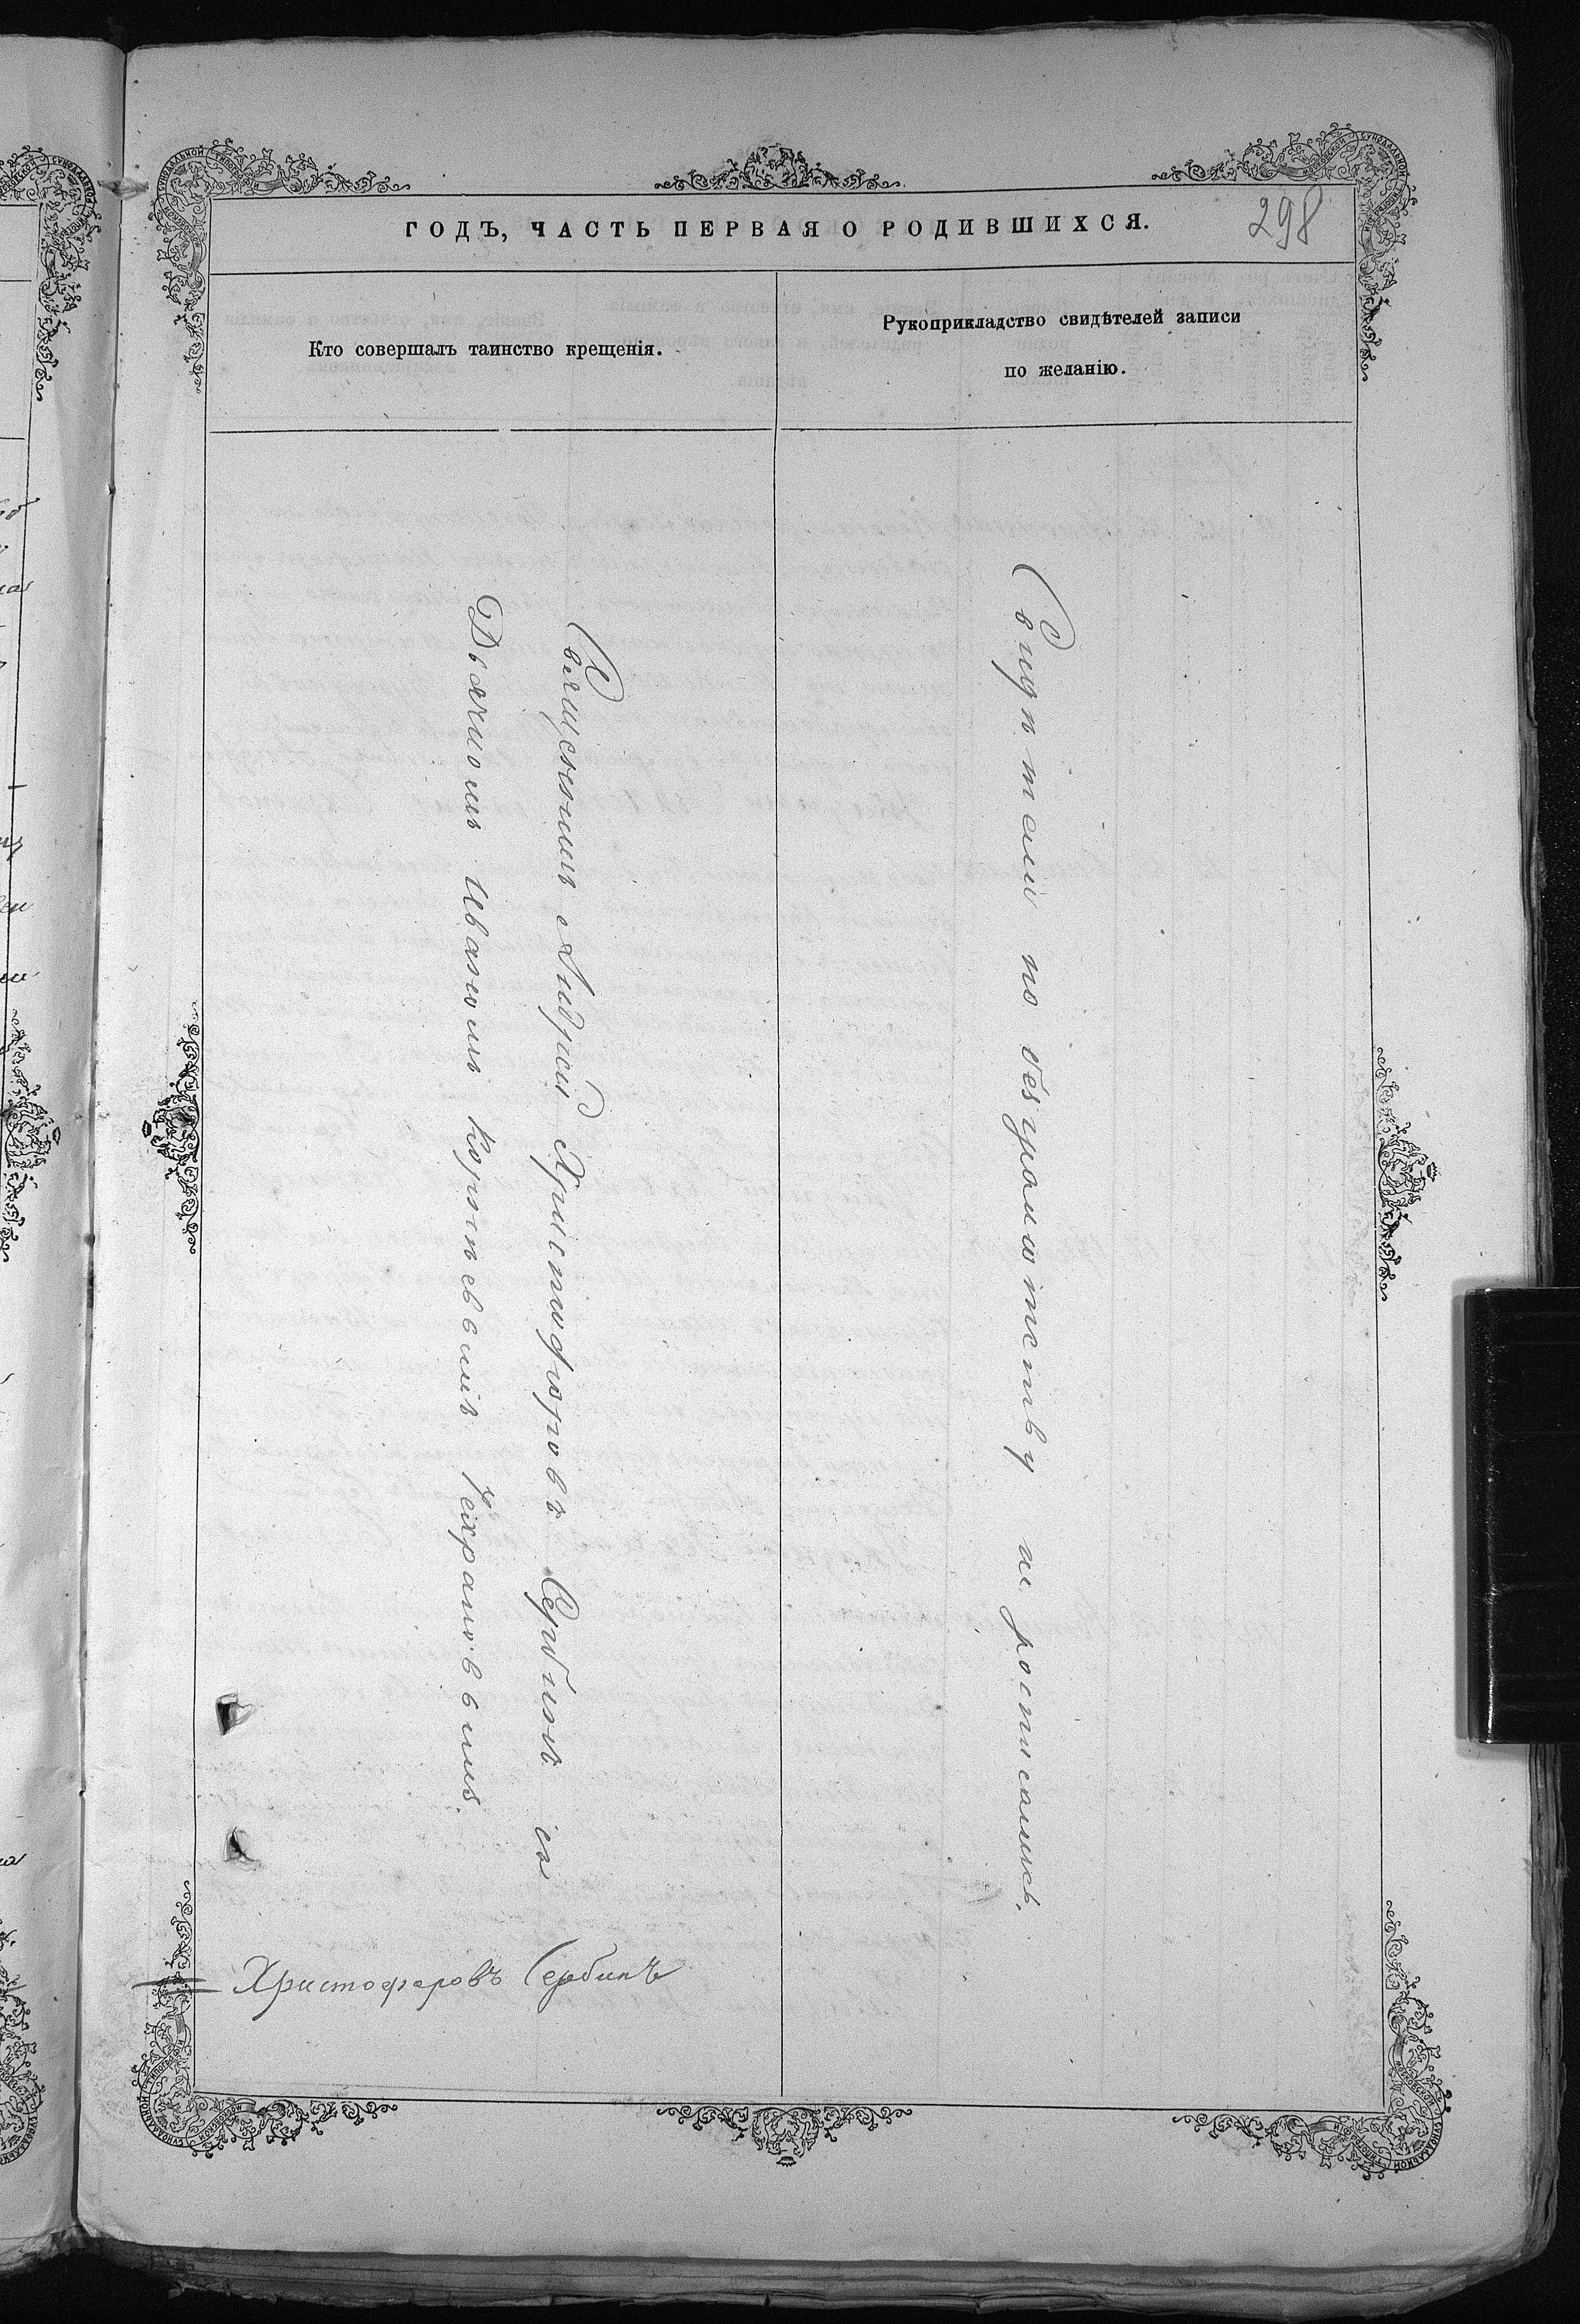 ГОДЪ, ЧАСТЬ ПЕРВАЯ О РОДИВШИХСЯ.
298
Кто совершалъ таинство крещенія.
Рукоприкладство свидѣтелей записи
по желанію.
Священникъ Андрей Христофоровъ Сербинъ съ
Дьячкомъ Иваномъ
Свидѣтели по безграмотству не росписались.
Христофоровъ Сербинъ